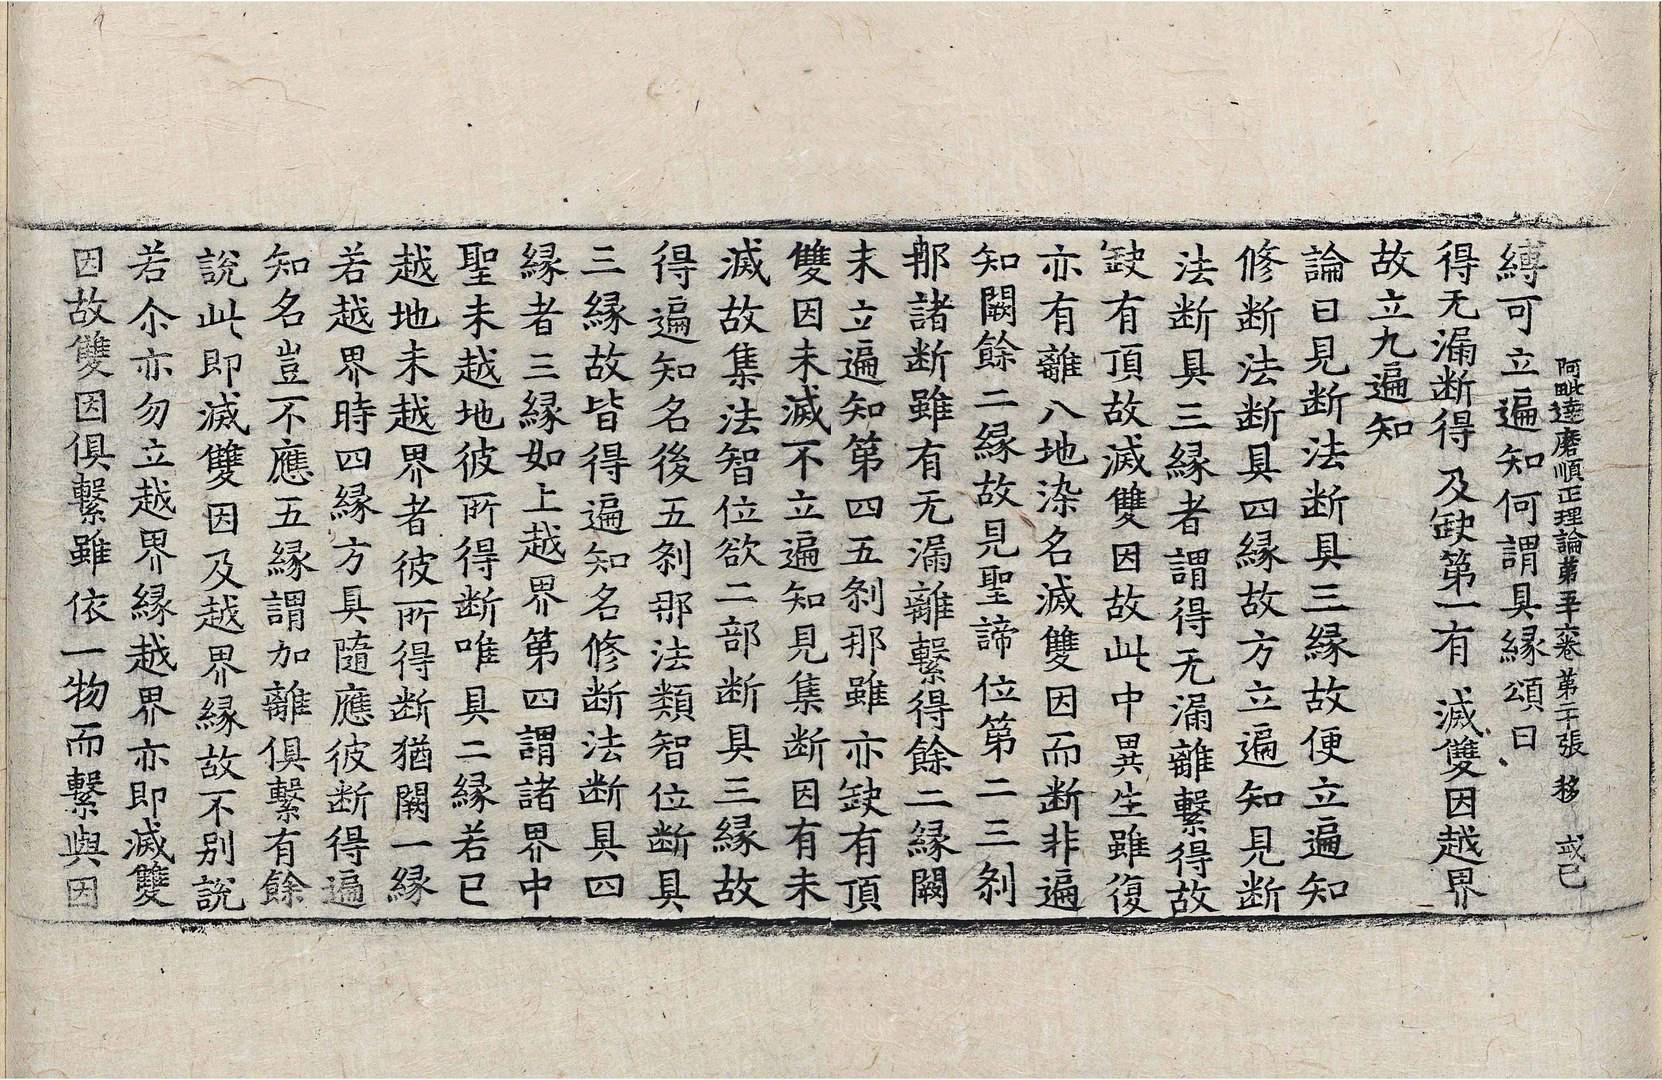 阿毗達磨順正理論第五十六卷 第二十張 移 或已
縛可立遍知何謂具緣頌曰
得无漏断得 及缺第一有 滅雙因越界
故立九遍知
論曰見断法断具三緣故便立遍知
修断法断具四緣故方立遍知見断
法断具三緣者謂得无漏離繫得故
缺有頂故滅雙因故此中異生雖復
亦有離八地染名滅雙因而断非遍
知闕餘二緣故見聖諦位第二三刹
那諸断雖有无漏離繫得餘二緣闕
未立遍知第四五刹那雖亦缺有頂
雙因未滅不立遍知見集断因有未
滅故集法智位欲二部断具三緣故
得遍知名後五刹那法類智位断具
三緣故皆得遍知名修断法断具四
緣者三緣如上越界第四謂諸界中
聖未越地彼所得断唯具二緣若已
越地未越界者彼所得断猶闕一緣
若越界時四緣方具隨應彼断得遍
知名豈不應五緣謂加離俱繫有餘
說此即滅雙因及越界緣故不別說
若尒亦勿立越界緣越界亦即滅雙
因故雙因俱繫雖依一物而繫與因